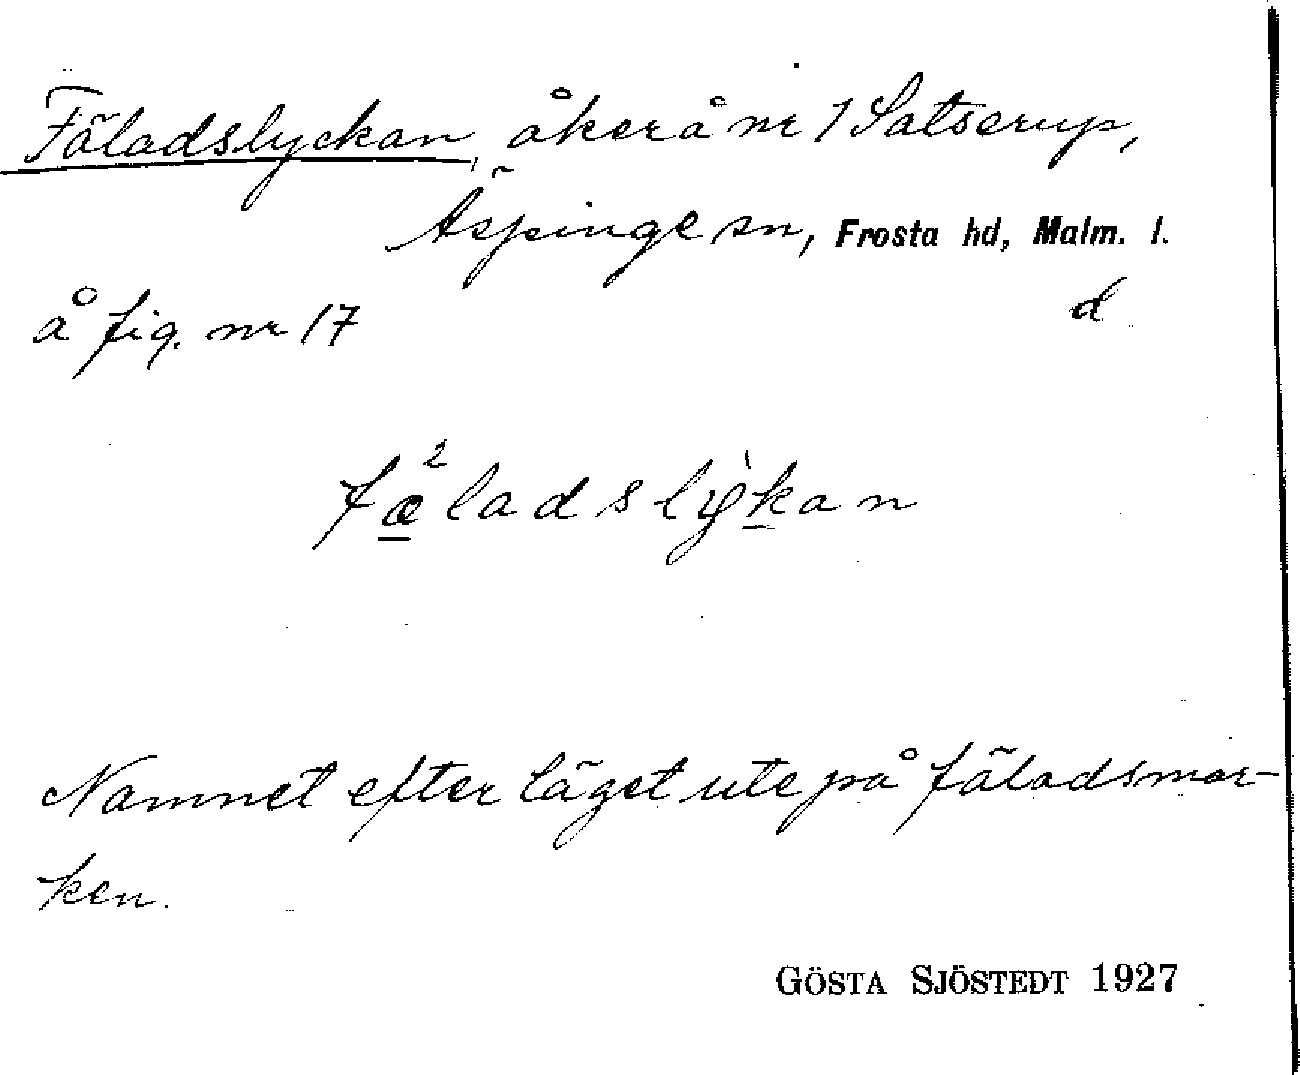 Fäladslyckan, åker å nr 1 Satserup,
Äspinge sn, Frosta hd, Malm. l.
å fig. nr 17 d
fæ²ladslỳkan
Namnet efter läget ute på fäladsmar-
ken.
GÖSTA SJÖSTEDT 1927